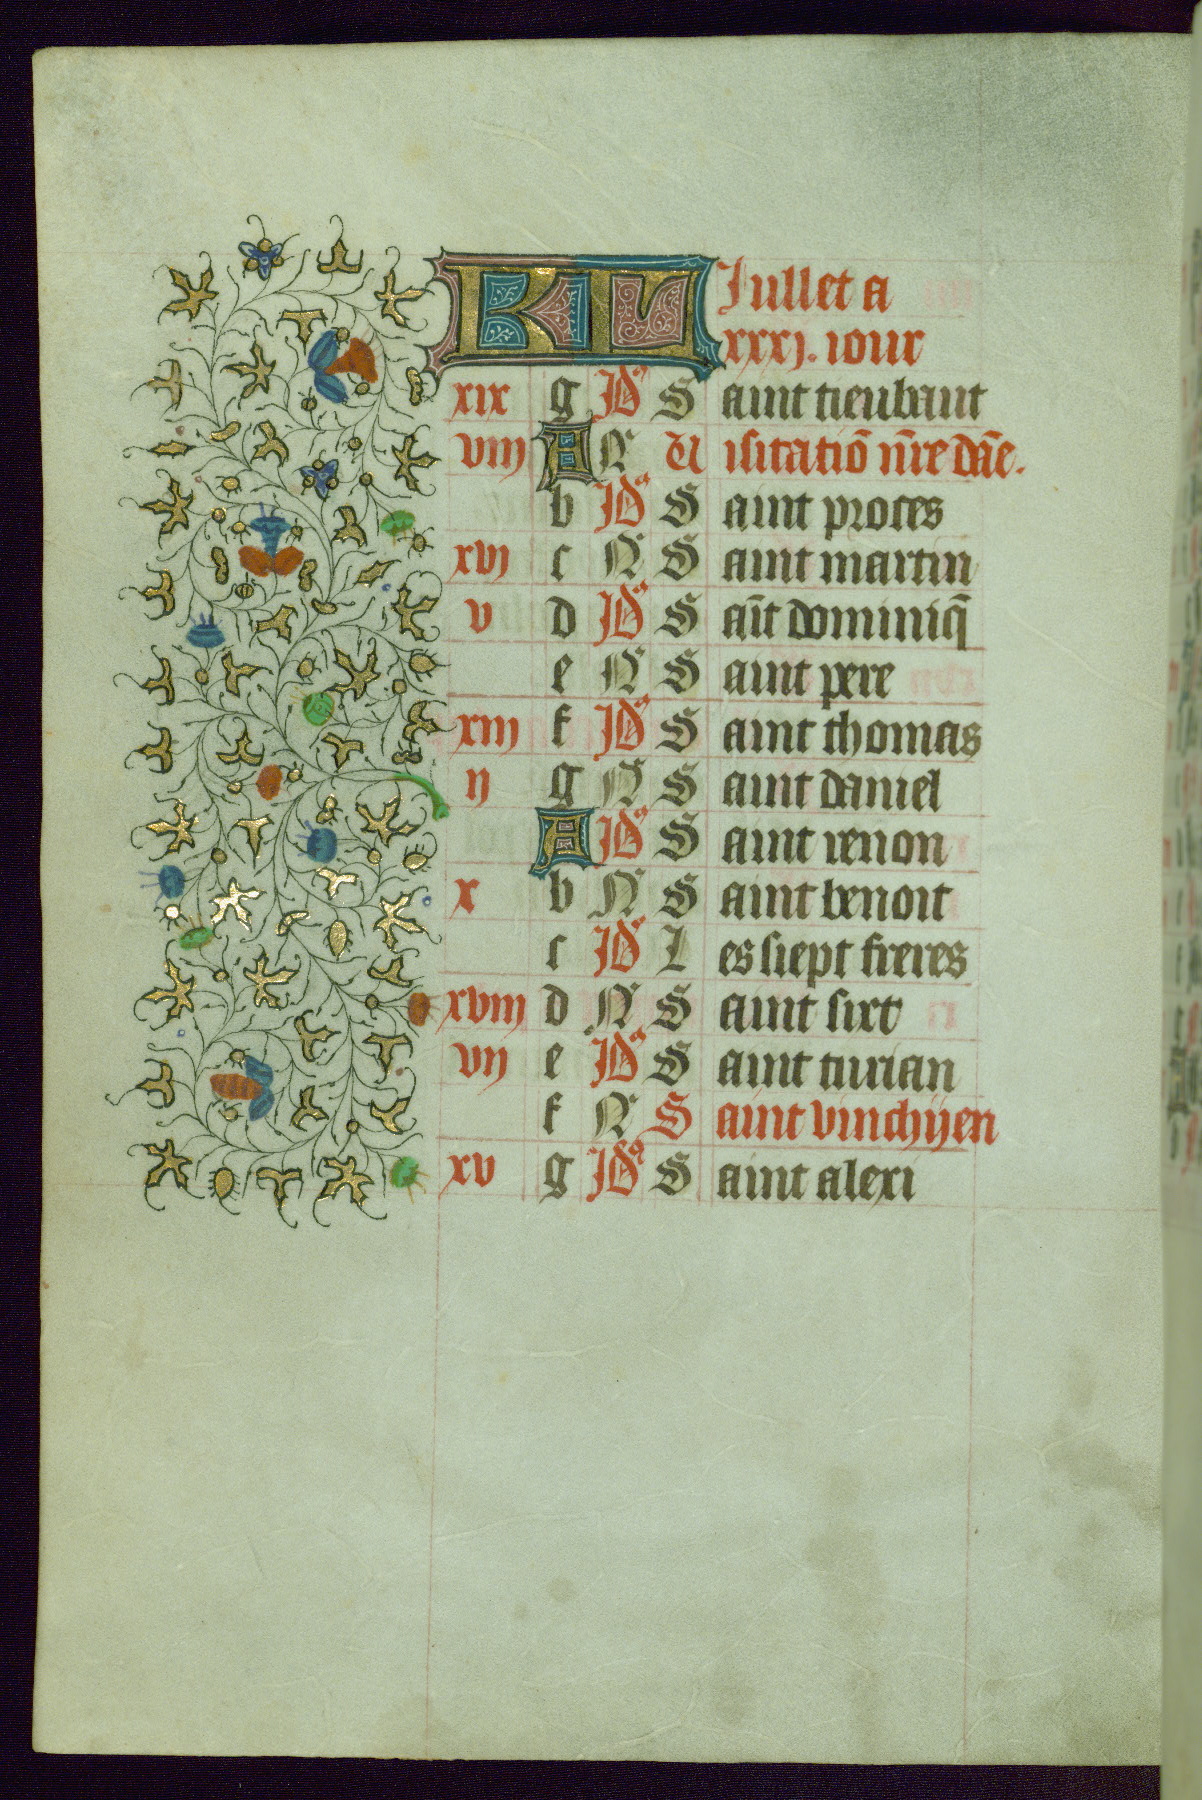 KL Jullet a
xxxj. iour
xix g Jd' S aint tieubaut
viij A N U isitatiō nr̄e dāe.
b Jd' S aint proces
xvj c N S aint martin
v d Jd' S aīt dominiq̄
e N S aint pere
xiij f Jd' S aint thomas
ij g N S aint daniel
A Jd' S aint venon
x b N S aint benoit
c Jd' L es siept freres
xviij d N S aint sixt
vij e Jd' S aint turian
f N S aint vinchijen
xv g Jd' S aint alexi